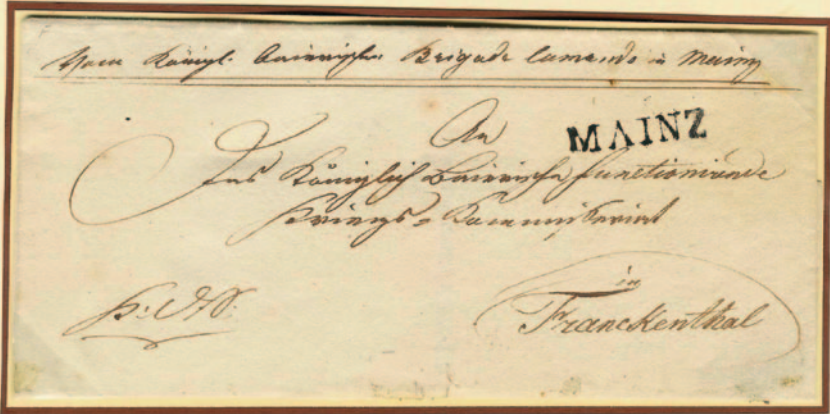 Vom Königl. Bairischen Brigade Comando in Mainz
An
MAINZ
Das Königlich Bairische functionirende
Kriegs-Kommissariat
in
Franckenthal